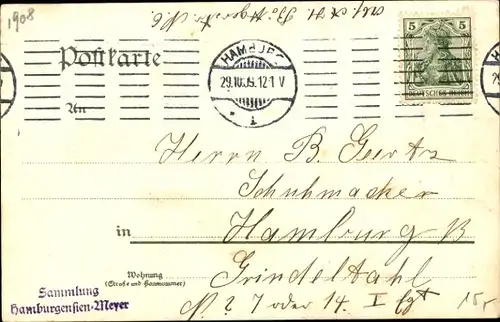 1908
Postkarte
HAMBURG
29.10.09.12-1 V
1
5
5
DEUTSCHES REICH
An
Herrn B. Geertz
Schuhmacher
in Hamburg
Grindeltahl
Wohnung
(Straße und Hausnummer)
N. 2 7 oder 14. I
Sammlung
Hamburgensien-Meyer
15,-